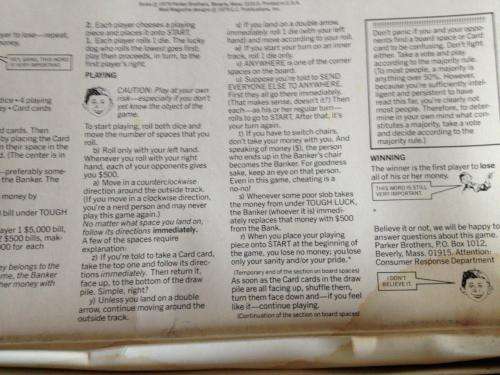 Rules © 1979 Parker Brothers, Beverly, Mass. Printed in U.S.A.
Mad Magazine designs © 1979 E.C. Publications, Inc.
yer to lose—repeat,
money.
YEP, MA'AM, THIS WORD
IS VERY IMPORTANT.
dice • 4 playing
y • Card cards
d cards. Then
by placing the Card
n their space in the
d. (The center is in
—preferably some-
the Banker. The
money by
l bill under TOUGH
layer 1 $5,000 bill,
f $500 bills, mak-
000 for each
ey belongs to the
me, the Banker
her money with
2. Each player chooses a playing
piece and places it onto START.
1. Each player rolls 1 die. The lucky
dog who rolls the lowest goes first;
play then proceeds, in turn, to the
first player's right.
PLAYING
CAUTION: Play at your own
risk—especially if you don't
yet know the object of the
game.
To start playing, roll both dice and
move the number of spaces that you
roll.
b) Roll only with your left hand.
Whenever you roll with your right
hand, each of your opponents gives
you $500.
a) Move in a counterclockwise
direction around the outside track.
(If you move in a clockwise direction,
you're a nerd person and may never
play this game again.)
No matter what space you land on,
follow its directions immediately.
A few of the spaces require
explanation:
z) If you're told to take a Card card,
take the top one and follow its direc-
tions immediately. Then return it,
face up, to the bottom of the draw
pile. Simple, right?
y) Unless you land on a double
arrow, continue moving around the
outside track.
x) If you land on a double arrow,
immediately roll 1 die (with your left
hand) and move according to your roll.
w) If you start your turn on an inner
track, roll 1 die only.
v) ANYWHERE is one of the corner
spaces on the board.
u) Suppose you're told to SEND
EVERYONE ELSE TO ANYWHERE.
First they all go there immediately.
(That makes sense, doesn't it?) Then
each—as his or her regular turn—
rolls to go to START. After that, it's
your turn again.
t) If you have to switch chairs,
don't take your money with you. And
speaking of money ($), the person
who ends up in the Banker's chair
becomes the Banker. For goodness
sake, keep an eye on that person.
Even in this game, cheating is a
no-no!
s) Whenever some poor slob takes
the money from under TOUGH LUCK,
the Banker (whoever it is) immedi-
ately replaces that money with $500
from the Bank.
r) When you place your playing
piece onto START at the beginning of
the game, you lose no money; you lose
only your sanity and/or your pride.*
(Temporary end of the section on board spaces)
As soon as the Card cards in the draw
pile are all facing up, shuffle them,
turn them face down and—if you feel
like it—continue playing.
(Continuation of the section on board spaces)
Don't panic if you and your oppo-
nents find a board space or Card
card to be confusing. Don't fight
either. Take a vote and play
according to the majority rule.
(To most people, a majority is
anything over 50%. However,
because you're sufficiently intel-
ligent and persistent to have
read this far, you're clearly not
most people. Therefore, to deter-
mine in your own mind what con-
stitutes a majority, take a vote
and decide according to the
majority rule.)
WINNING
The winner is the first player to lose
all of his or her money.
THIS WORD IS STILL
VERY IMPORTANT.
Believe it or not, we will be happy to
answer questions about this game.
Parker Brothers, P.O. Box 1012,
Beverly, Mass. 01915. Attention:
Consumer Response Department
I DON'T
BELIEVE IT.